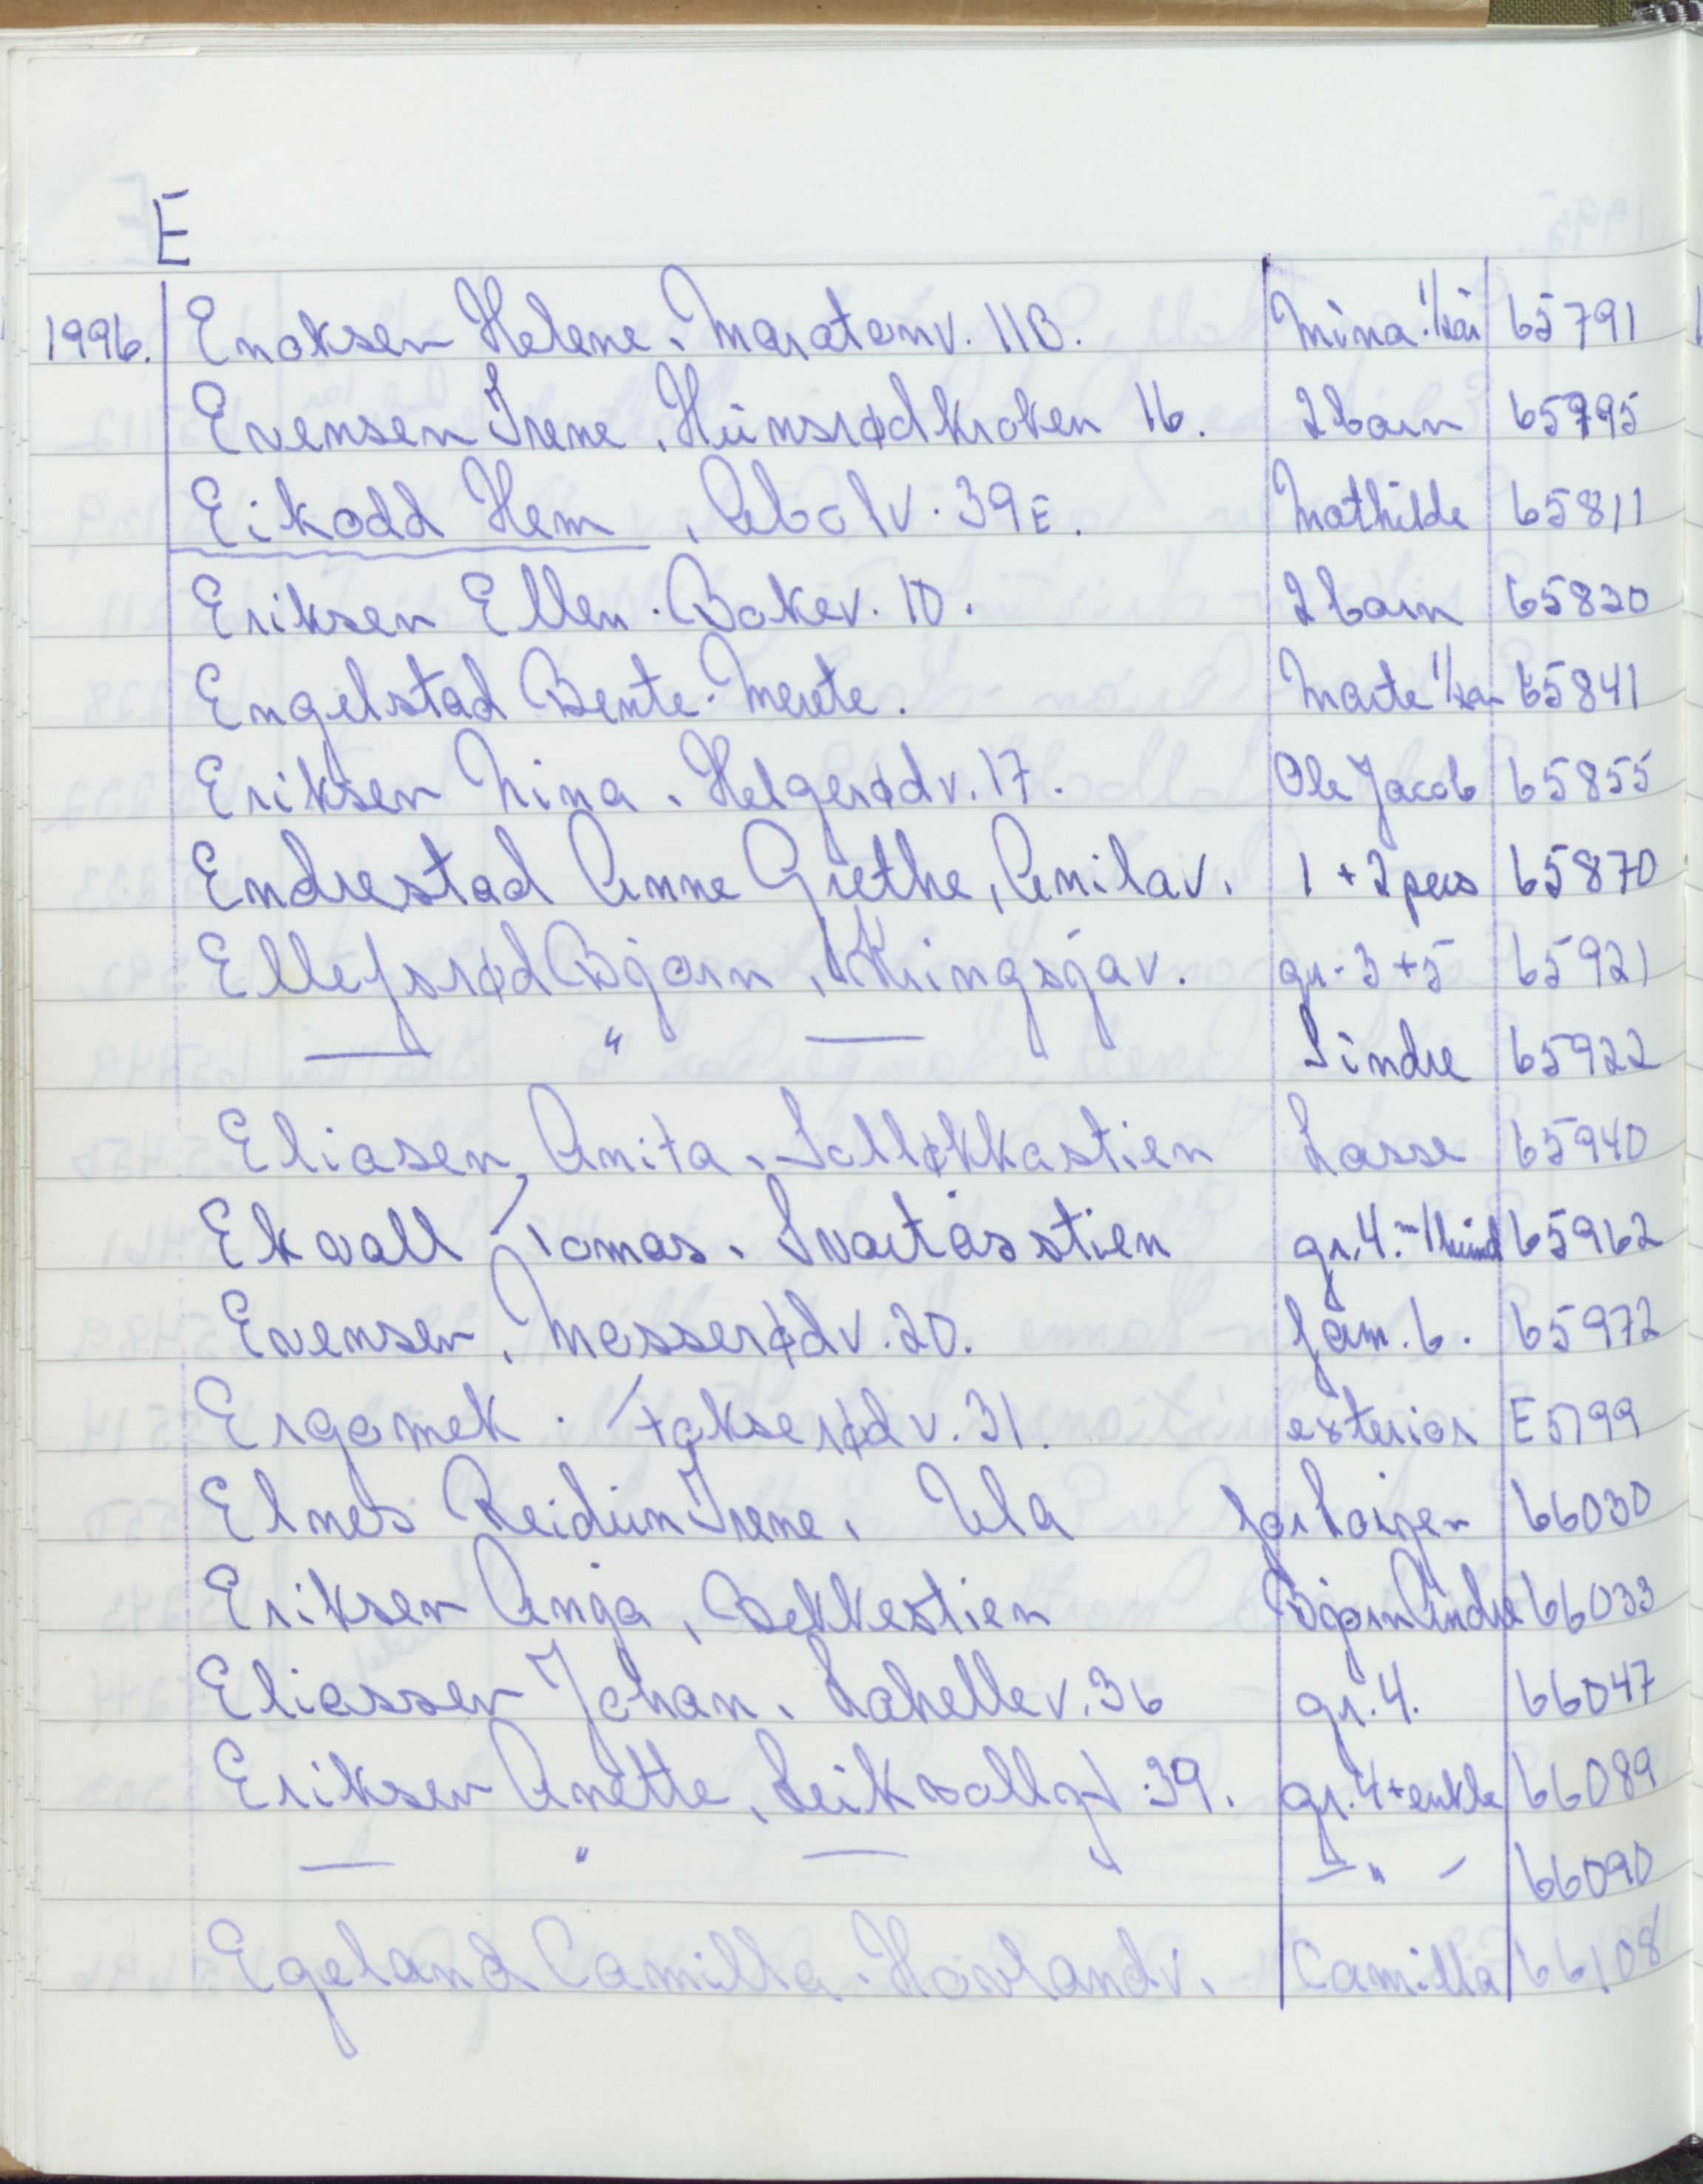 E
1996. Enoksen Helene. Maratonv. 11B. Mina 1/2år 65791
Evensen Irene. Hunsrødkroken 16. 2 barn 65795
Eikodd Hem, Abolv. 39E. Mathilde 65811
Eriksen Ellen. Bokev. 10. 2 barn 65820
Engelstad Bente-Merete. Marte 1/2år 65841
Eriksen Nina. Helgerødv. 17. Ole Jacob 65855
Endrestad Anne Grethe, Anilav. 1 + 2 pers 65870
Ellefsrød Bjørn, Kringsjåv. gr. 3+5 65921
— " — Sindre 65922
Eliasen Anita. Solløkkastien Lasse 65940
Ekvall Tomas. Svartåsstien gr. 4. m/hund 65962
Evensen, Mosserødv. 20. fam. 6. 65972
Ergomek. Fokserødv. 31. exteriør E5199
Elnes Reidun Irene. Ula 66030
Eriksen Anja, Bekkestien Bjørn Andre 66033
Eliassen Johan. Lahellev. 36 gr. 4. 66047
Eriksen Anette, Leikvollgt. 39. gr. 4 + enkle 66089
— " — — " — 66090
Egeland Camilla. Hovlandv. Camilla 66108